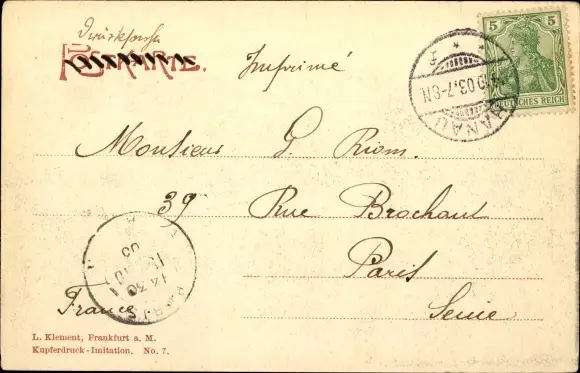 Drucksache
Imprimé
5 5
DEUTSCHES REICH
HANAU
03.7-8N.
Monsieur G. Riom.
39 Rue Brochant
Paris
Seine
France
PARIS
14 30
03
L. Klement, Frankfurt a. M.
Kupferdruck-Imitation. No. 7.